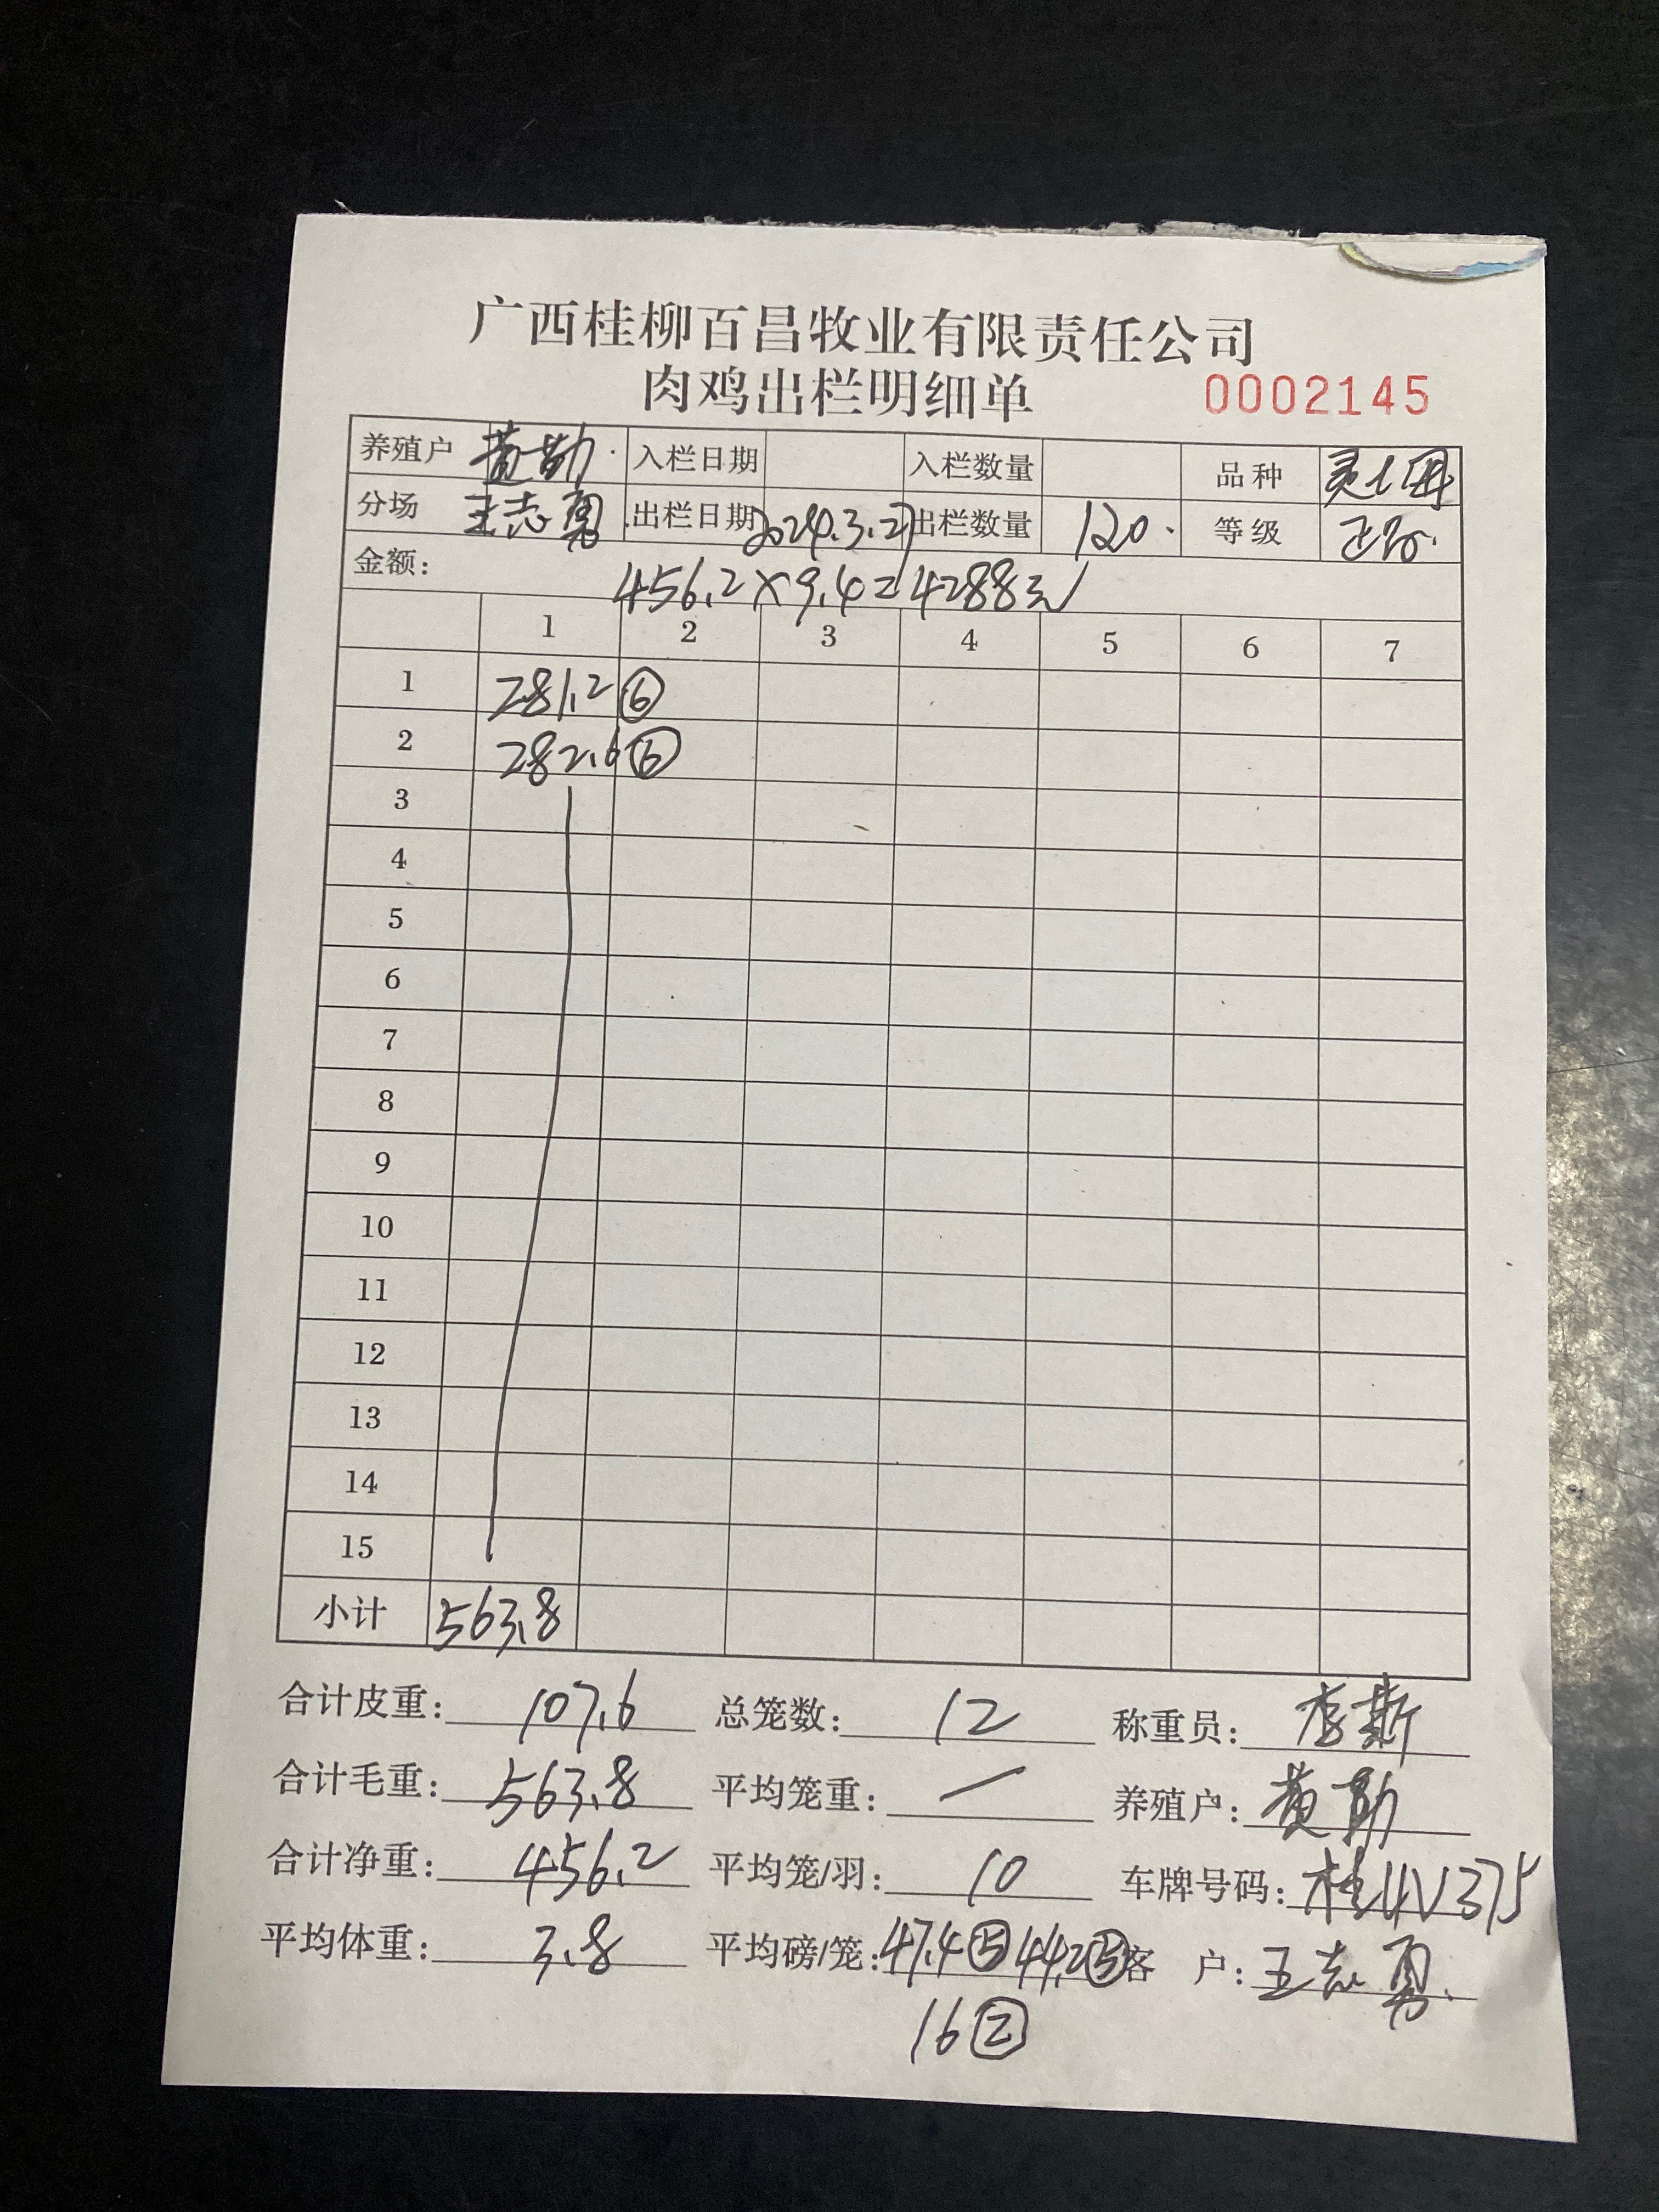 广西桂柳百昌牧业有限责任公司
肉鸡出栏明细单 0002145
养殖户 黄勤 入栏日期 入栏数量 品种
分场 王志勇 出栏日期 2024.3.27 出栏数量 120. 等级 正品.
金额: 456.2×9.4=4288元
1 2 3 4 5 6 7
1 281.2⑥
2 282.6⑥
3
4
5
6
7
8
9
10
11
12
13
14
15
小计 563.8
合计皮重: 107.6 总笼数: 12 称重员: 李斯
合计毛重: 563.8 平均笼重: 一 养殖户: 黄勤
合计净重: 456.2 平均笼/羽: 10 车牌号码:
平均体重: 3.8 平均磅/笼: 47.4⑤ 44.2⑤ 客 户: 王志勇.
16②